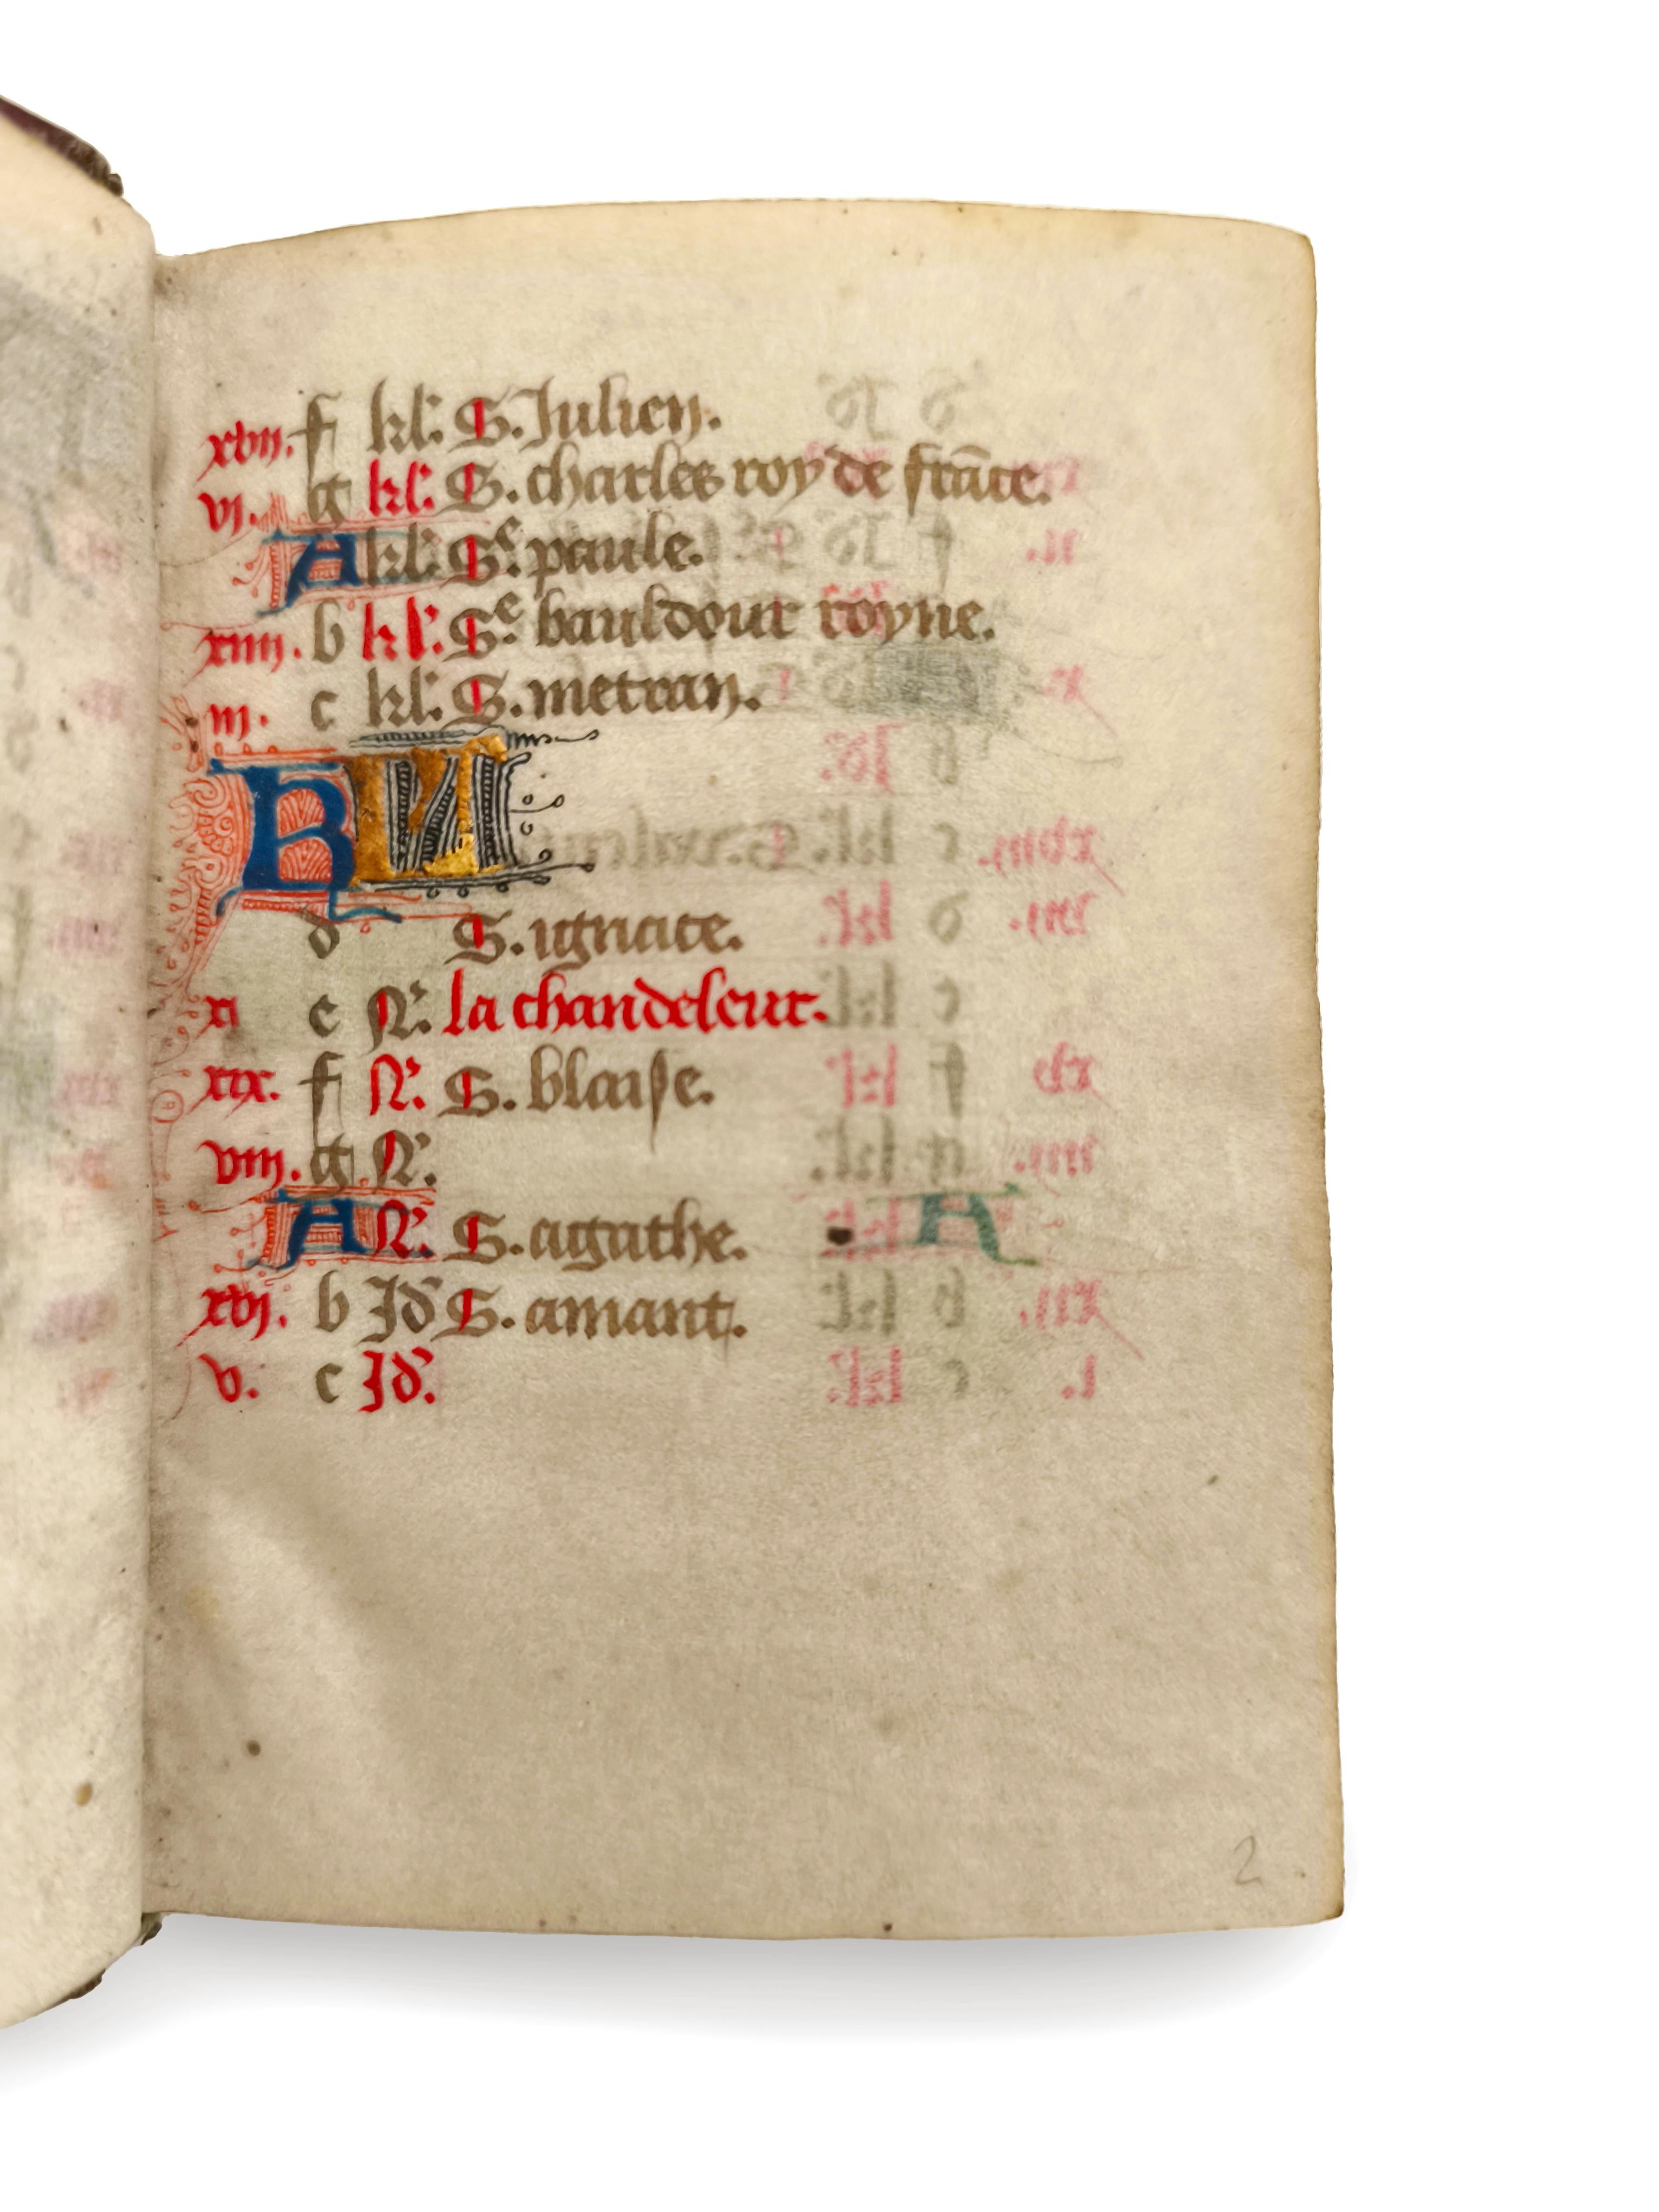 xvii. f kl'. S. Julien.
vi. g kl'. S. charles roy de frāce.
A kl'. Sᵉ. paule.
xiiii. b kl'. Sᵉ. bauldour royne.
iii. c kl'. S. metran.
KL
d S. ignace.
xi e N'. la chandeleur.
xix. f N'. S. blaise.
viii. g N'.
A N'. S. agathe.
xvi. b Id' S. amant.
v. c Id'.
2